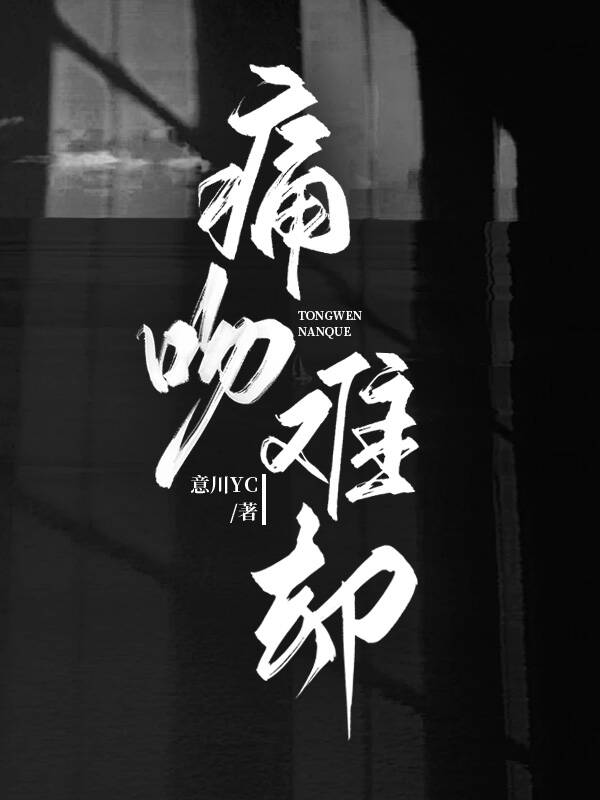 痛吻难却
TONGWEN
NANQUE
意川YC
/著